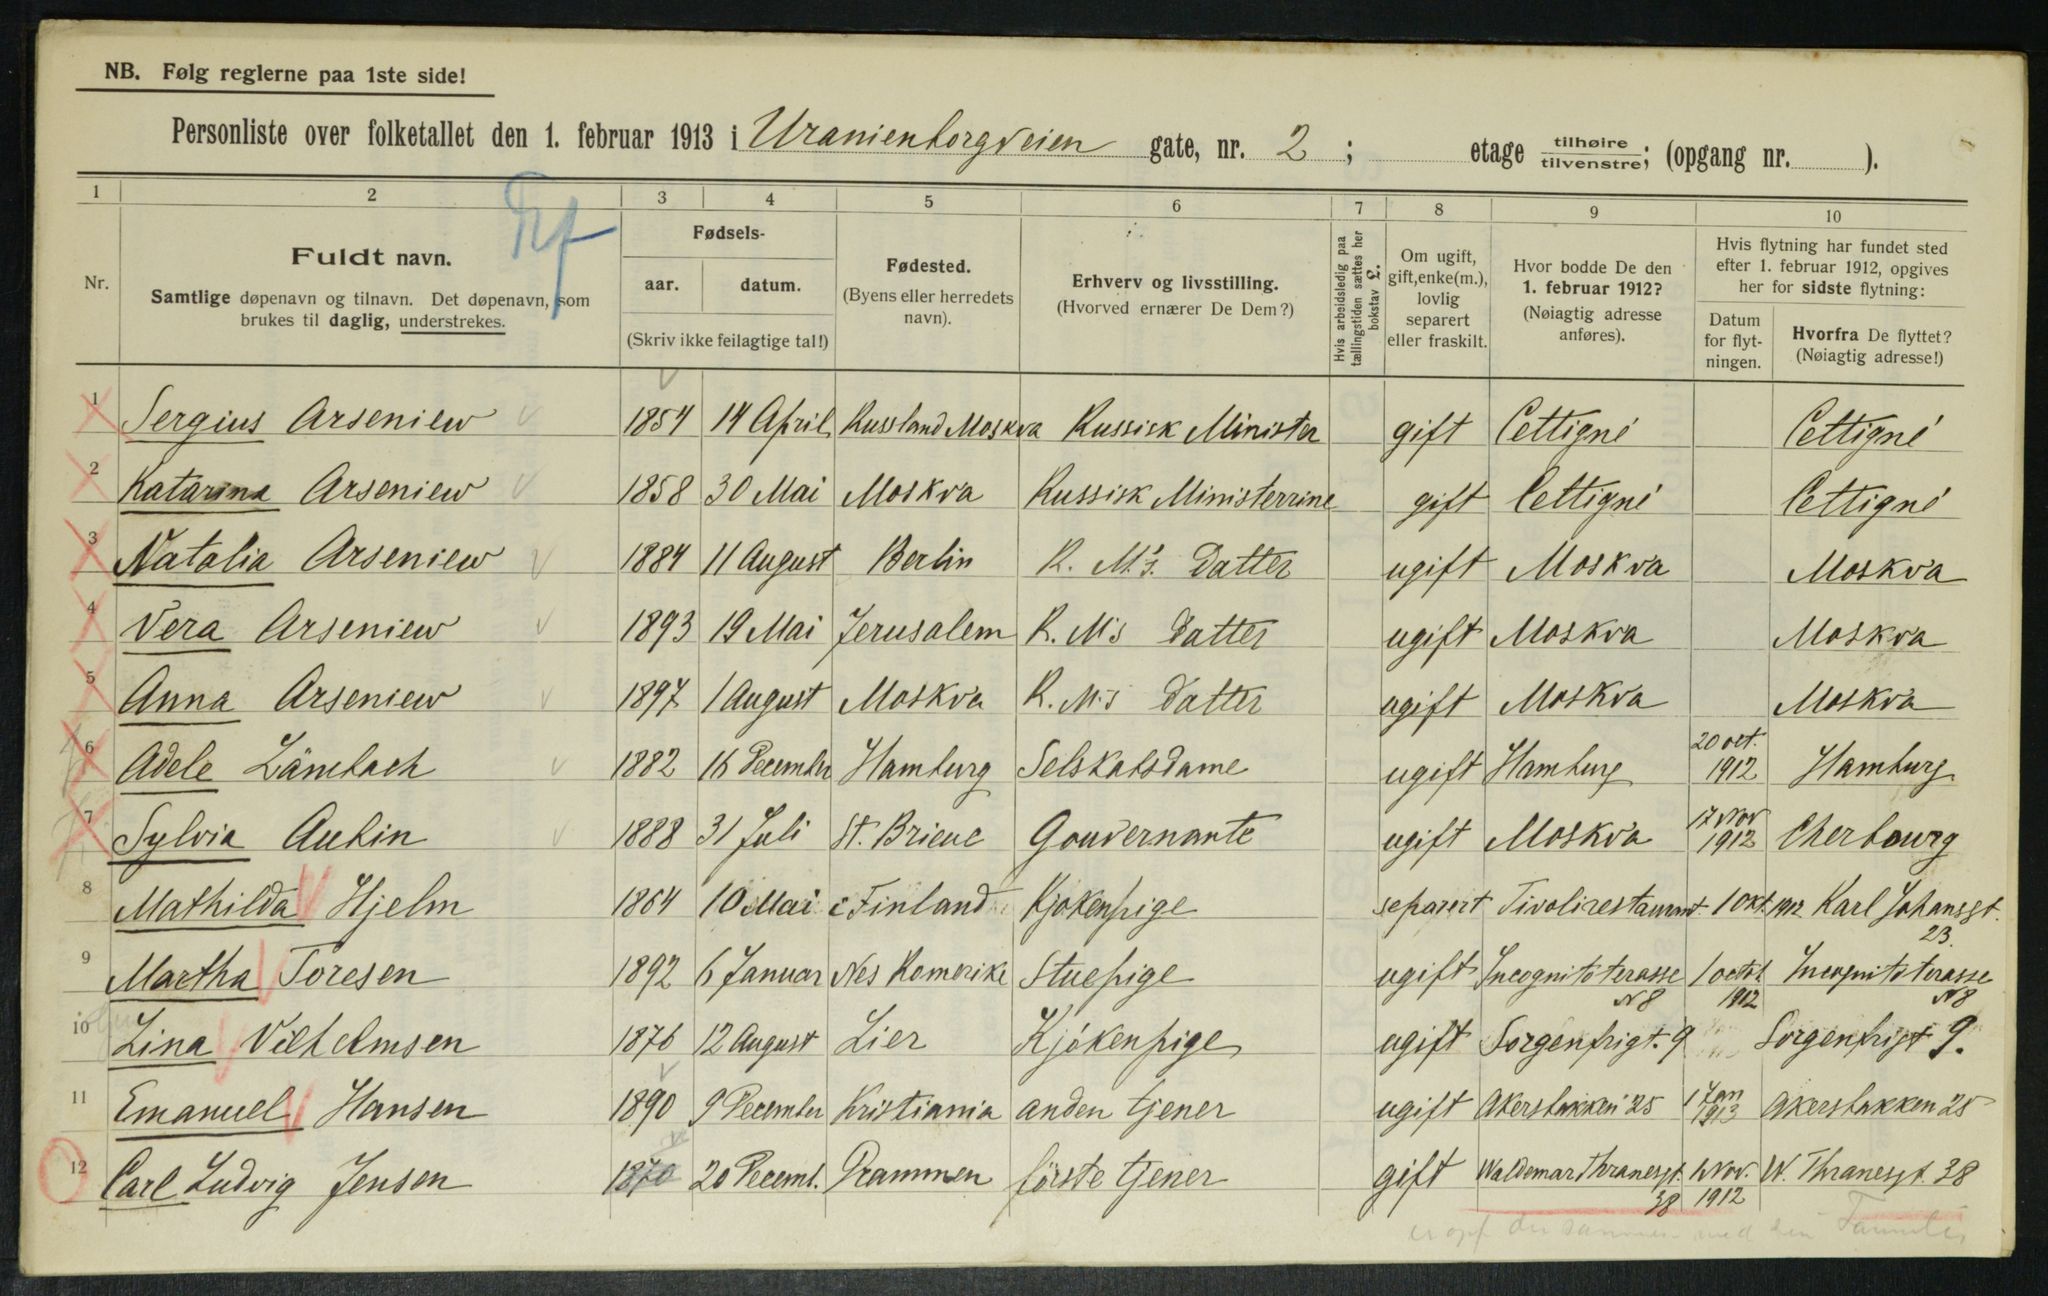 NB. Følg reglerne paa 1ste side!
Personliste over folketallet den 1. februar 1913 i Uranienborgveien gate, nr. 2 ; etage tilhøire tilvenstre ; (opgang nr. ).
1 2 3 4 5 6 7 8 9 10
Nr.
Fuldt navn.
Samtlige døpenavn og tilnavn. Det døpenavn, som
brukes til daglig, understrekes.
Fødsels-
aar. datum.
(Skriv ikke feilagtige tal!)
Fødested.
(Byens eller herredets
navn).
Erhverv og livsstilling.
(Hvorved ernærer De Dem?)
Hvis arbeidsledig paa
tællingstiden sættes her
bokstav £.
Om ugift,
gift, enke(m.),
lovlig
separert
eller fraskilt.
Hvor bodde De den
1. februar 1912?
(Nøiagtig adresse
anføres).
Hvis flytning har fundet sted
efter 1. februar 1912, opgives
her for sidste flytning:
Datum
for flyt-
ningen.
Hvorfra De flyttet?
(Nøiagtig adresse!)
1 Sergius Arseniew 1854 14 April Russland Moskva Russisk Minister gift Cettigné Cettigné
2 Katarina Arseniew 1858 30 Mai Moskva Russisk Ministerrine gift Cettigné Cettigné
3 Natalia Arseniew 1884 11 August Berlin R. M's. Datter ugift Moskva Moskva
4 Vera Arseniew 1893 19 Mai Jerusalem R. M's Datter ugift Moskva Moskva
5 Anna Arseniew 1897 1 August Moskva R. M's Datter ugift Moskva Moskva
6 Adele 1882 16 December Hamburg Selskabsdame ugift Hamburg 20 oct. 1912 Hamburg
7 Sylvia Aubin 1888 31 Juli St. Brieuc Gouvernante ugift Moskva 17 Nov 1912 Cherbourg
8 Mathilda Hjelm 1864 10 Mai i Finland Kjøkenpige separert Tivolirestaurant 1 okt. 1912 Karl Johansgt. 23.
9 Martha Toresen 1892 6 Januar Nes Romerike Stuepige ugift Incognitoterasse N 8 1 octob. 1912 Incognitoterasse N 8
10 Lina Vilhelmsen 1876 12 August Lier Kjókenpige ugift Sorgenfrigt. 9 Sorgenfrigt 9.
11 Emanuel Hansen 1890 9 December Kristiania anden tjener ugift Akersbakken 25 1 Jan 1913 Akersbakken 25
12 Carl Ludvig Jensen 1870 20 Decemb. Drammen förste tjener gift Waldemar Thranesgt. 38 1 Nov. 1912 W. Thranesgt. 38